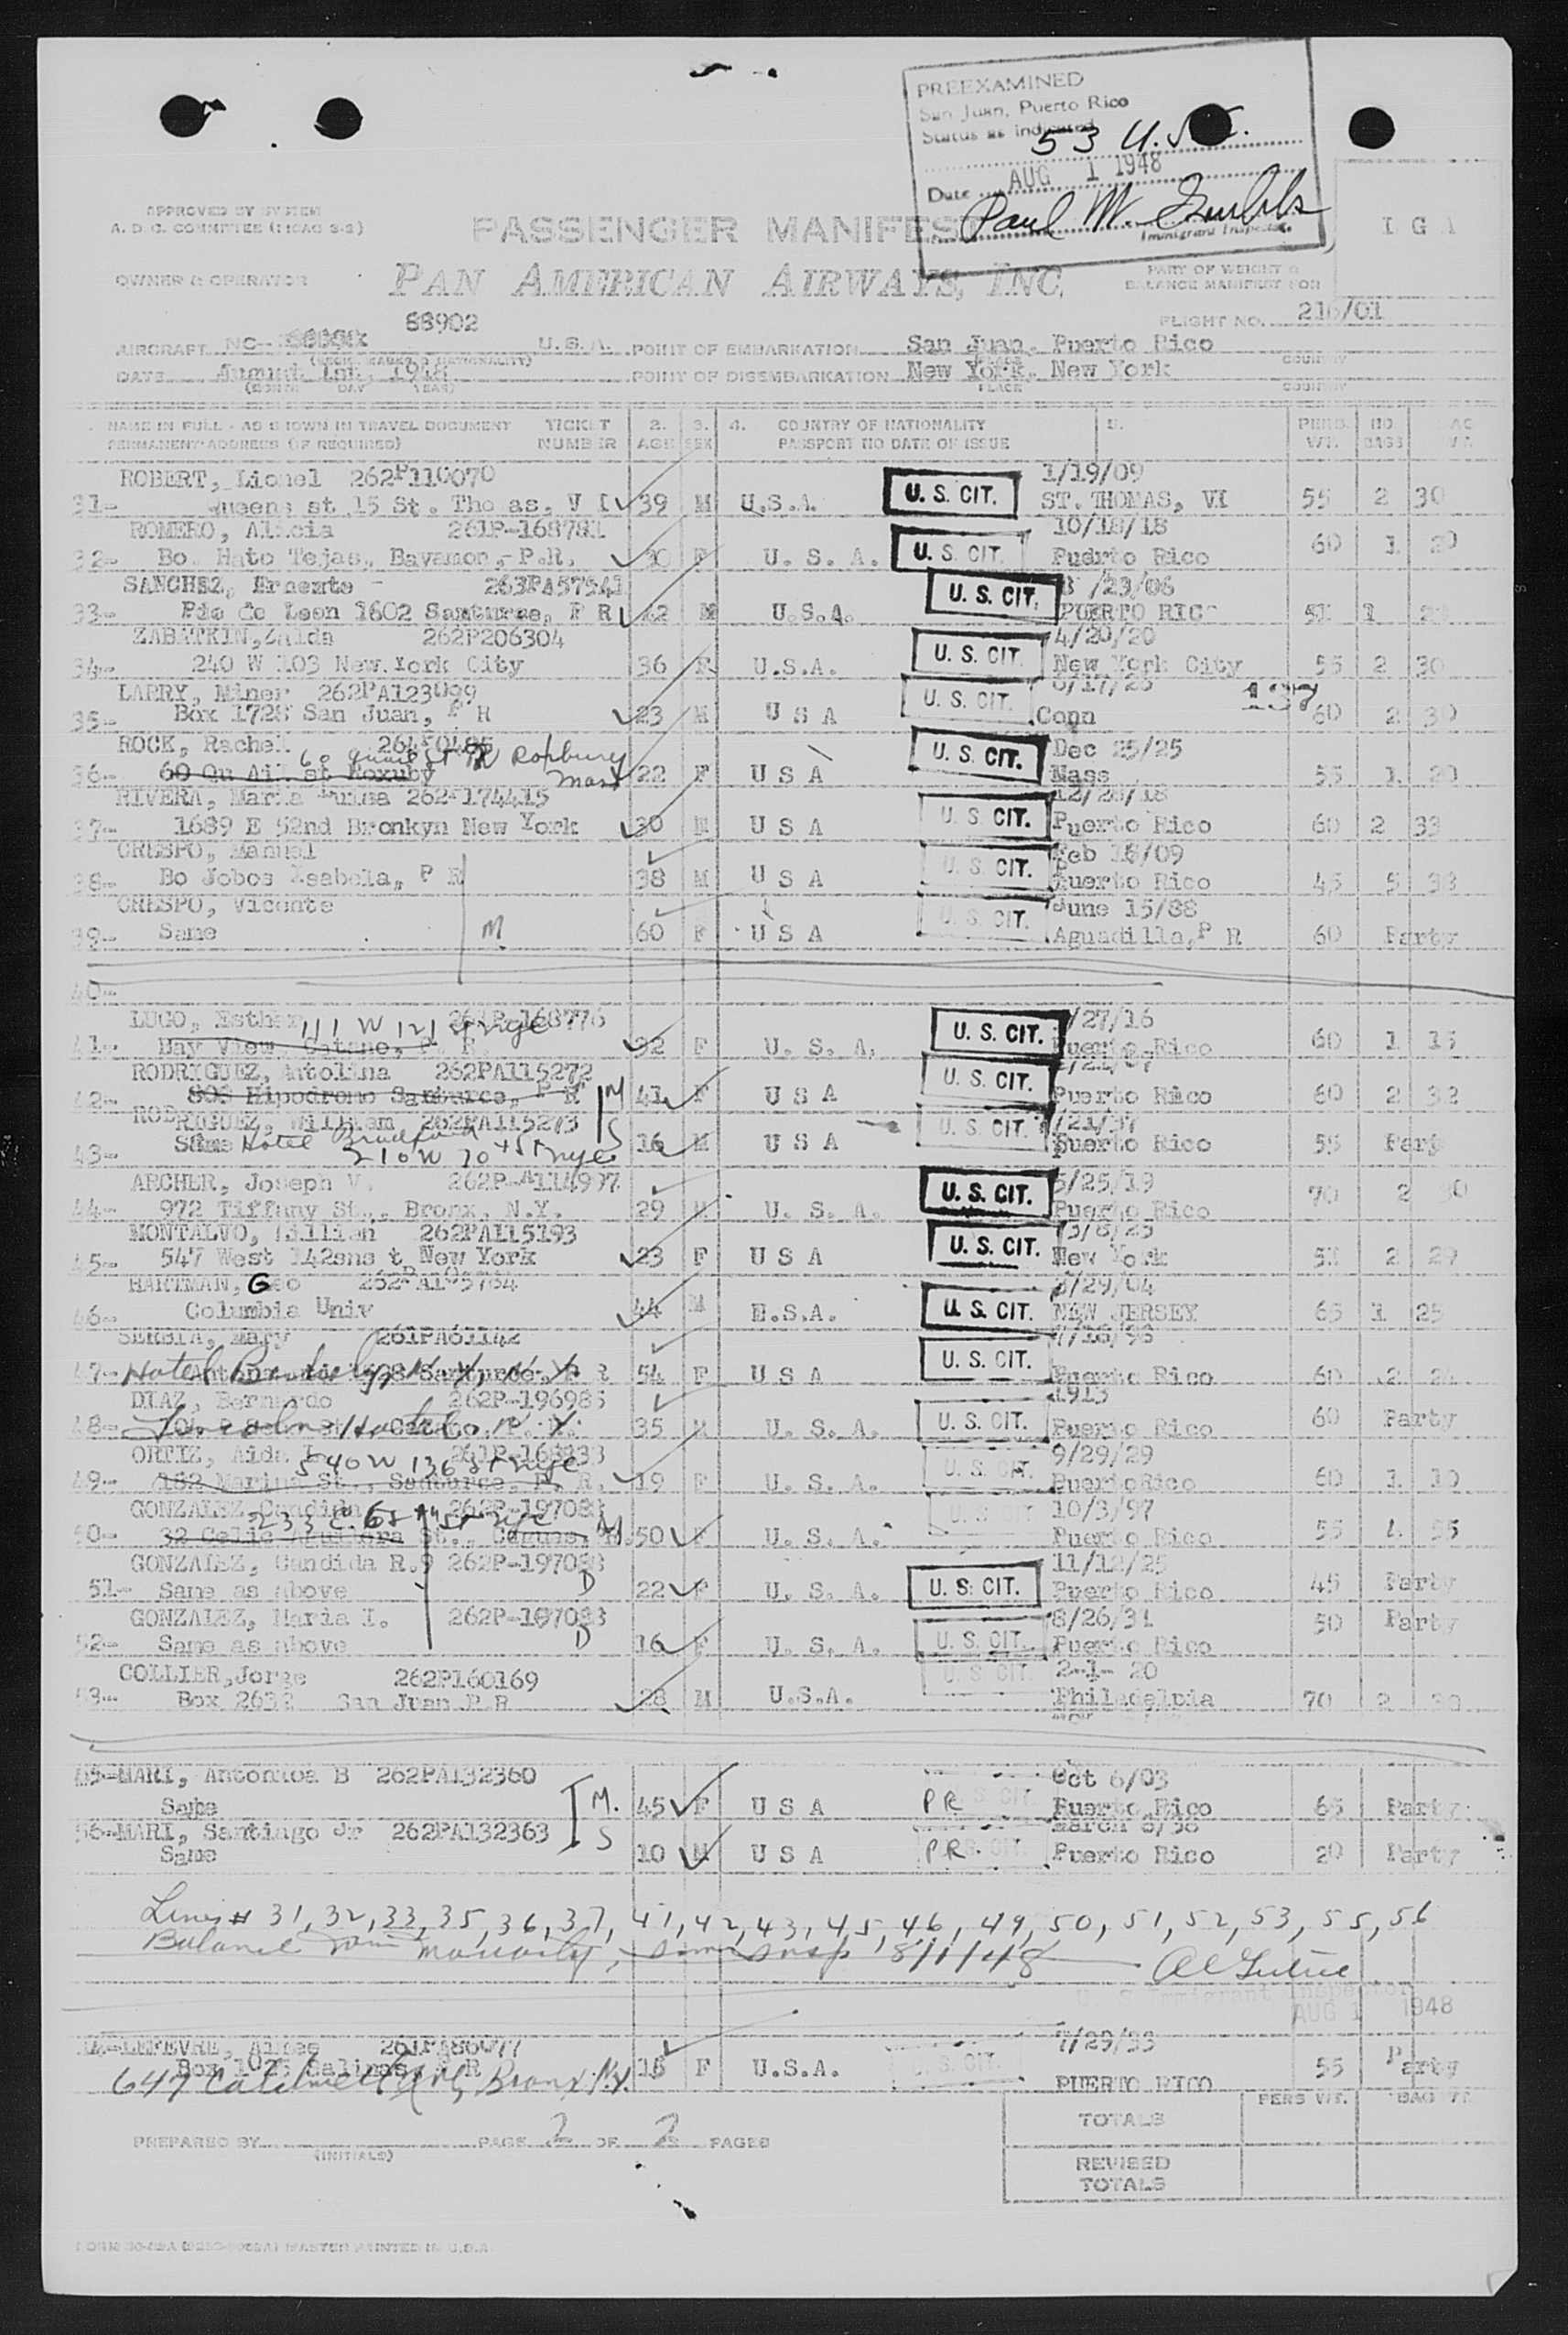 PREEXAMINED
San Juan, Puerto Rico
Status as indicated
53 U.S.C.
Date AUG 1 1948
Paul M.
Immigrant Inspector
APPROVED BY SYSTEM
A. D. C. COMMITTEE
PASSENGER MANIFEST
I G A
OWNER & OPERATOR
PAN AMERICAN AIRWAYS, INC.
PART OF WEIGHT &
BALANCE MANIFEST FOR
88902
FLIGHT NO. 216/01
AIRCRAFT NC- U.S.A. POINT OF EMBARKATION San Juan, Puerto Rico
DATE August 1st, 1948 POINT OF DISEMBARKATION New York, New York
(MONTH DAY YEAR) PLACE COUNTRY
NAME IN FULL - AS SHOWN IN TRAVEL DOCUMENT TICKET 2. 3. 4. COUNTRY OF NATIONALITY 5. PERS. NO.
PERMANENT ADDRESS (IF REQUIRED) NUMBER AGE SEX PASSPORT NO DATE OF ISSUE WT. BAGS
ROBERT, Lionel 262P110070 1/19/09
31- Queens st 15 St. Thomas, V I 39 M U.S.A. U. S. CIT. ST. THOMAS, VI 55 2 30
ROMERO, Alicia 261P-168781 10/18/18
32- Bo. Hato Tejas, Bayamon, P.R. F U. S. A. U. S. CIT. Puerto Rico 60 1 20
SANCHEZ, Ernesto - 263PA57541 /23/06
33- de Leon 1602 Santurce, P R 42 M U.S.A. U. S. CIT. PUERTO RICO 1
ZABATKIN, Zaida 262P206304 4/20/20
34- 240 W 103 New York City 36 F U.S.A. U. S. CIT. New York City 55 2 30
LARRY, Miner 262PA123099 137
35- Box 1728 San Juan, P R 23 M U S A U. S. CIT. Conn 60 2 30
ROCK, Rachel Dec 25/25
60 Quail St W Roxbury Mass
36- 60 Qu Ail st Roxuby 22 F U S A U. S. CIT. Mass 55 1 20
RIVERA, Maria Luisa 262P174415 12/28/18
37- 1689 E 52nd Bronkyn New York 30 U S A U. S. CIT. Puerto Rico 60 2 33
CRESPO, Manuel Feb 18/09
38- Bo Jobos Isabela, P R 38 M U S A U. S. CIT. Puerto Rico 45 5 38
CRESPO, Vicente June 15/88
39- Same M 60 F U S A U. S. CIT. Aguadilla, P R 60 Party
40-
LUGO, Esther 261P-168776 /27/16
111 W 121 St nyc
41- Bay View, Catano, P. R. 32 F U. S. A. U. S. CIT. Puerto Rico 60 1 15
RODRIGUEZ, Antolina 262PA115272
42- 808 Hipodromo Santurce, P R M 41 F U S A U. S. CIT. Puerto Rico 60 2 32
RODRIGUEZ, William 262PA115273 S
43- Same Hotel Bradford 16 M U S A U. S. CIT. Puerto Rico 55 Party
210 W 70 St nyc
ARCHER, Joseph V. 262P-A114997 5/25/19
44- 972 Tiffany St., Bronx, N.Y. 29 M U. S. A. U. S. CIT. Puerto Rico 70 2
MONTALVO, Lillian 262PA115193
45- 547 West 142sns t New York 23 F U S A U. S. CIT. New York 2 29
HARTMAN, Geo
46- Columbia Univ 44 M E.S.A. U. S. CIT. NEW JERSEY 65 1 25
SERBIA, Mary 261PA61142 7/16/96
47- Hotel 54 F U S A U. S. CIT. Puerto Rico 60 2 24
DIAZ, Bernardo 262P-196985 1913
48- Lincoln Hotel N. Y. 35 M U. S. A. U. S. CIT. Puerto Rico 60 Party
ORTIZ, Aida 261P-168833 9/29/29
540 W 136 St nyc
49- 162 Marina St., Santurce, P. R. 19 F U. S. A. U. S. CIT. Puerto Rico 60 1 10
GONZALEZ, Candida 262P-197083 10/3/97
233 E. 65th St nyc M
50- 32 Celis Aguilera St., Caguas, 50 F U. S. A. U. S. CIT. Puerto Rico 55 4 55
GONZALEZ, Candida R. 262P-197083 11/12/25
51- Same as above D 22 F U. S. A. U. S. CIT. Puerto Rico 45 Party
GONZALEZ, Maria I. 262P-197083 8/26/31
52- Same as above D 16 F U. S. A. U. S. CIT. Puerto Rico 50 Party
COLLIER, Jorge 262P160169 2-1- 20
53- Box 2632 San Juan P R 28 M U.S.A. U. S. CIT. Philadelphia 70 2 30
55-MARI, Antonioa B 262PA132360 Oct 6/03
Same M. 45 F U S A PR U. S. CIT. Puerto Rico 65 Party
56-MARI, Santiago Jr 262PA132363 S March 8/38
Same 10 M U S A PR U. S. CIT. Puerto Rico 20 Party
Lines # 31, 32, 33, 35, 36, 37, 41, 42, 43, 45, 46, 49, 50, 51, 52, 53, 55, 56
Balance 8/1/48
U. S. Immigrant Inspector
AUG 1 1948
LEFEVRE, Aimee 261PA86077 7/29/33
Box 1023 Salinas, P R 15 F U.S.A. S. CIT. PUERTO RICO 55 Party
647 Bronx N.Y.
PERS WT. BAG WT.
TOTALS
PREPARED BY (INITIALS) PAGE 2 OF 2 PAGES
REVISED
TOTALS